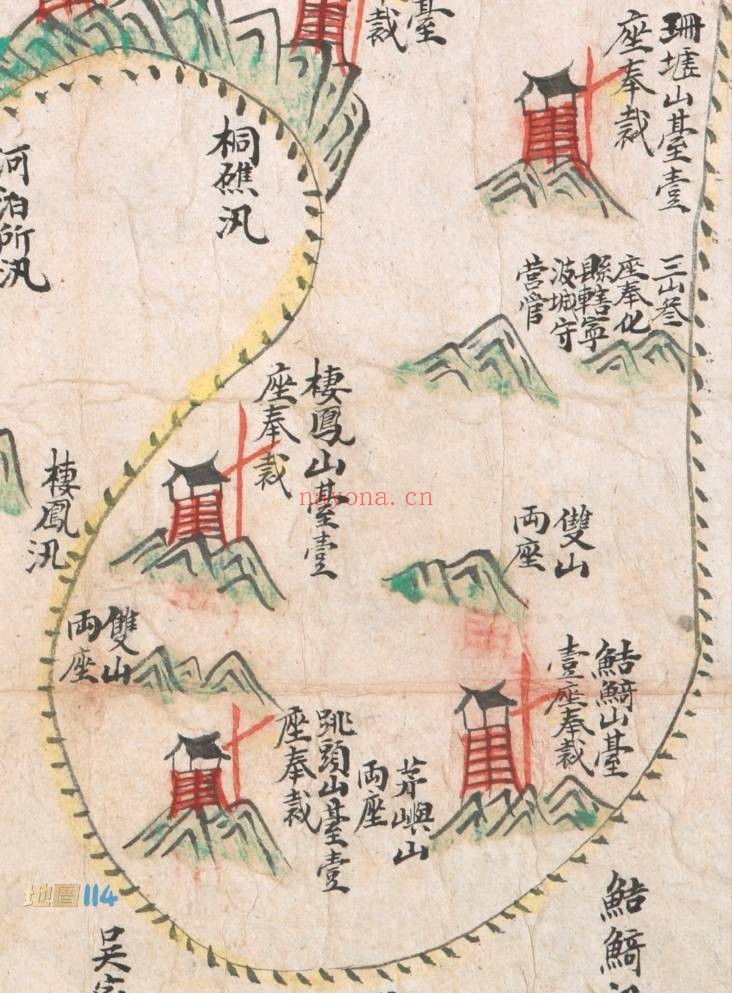 珊墟山臺壹
座奉裁
臺
裁
桐礁汛
河泊所汛
三山叄
座奉化
縣轄寧
波城守
营管
棲鳳山臺壹
座奉裁
棲鳳汛
雙山
両座
雙山
両座
鮚鮚山臺
壹座奉裁
跳頭山臺壹
座奉裁
茅嶼山
両座
鮚鮚
吴
nayona.cn
地圖114